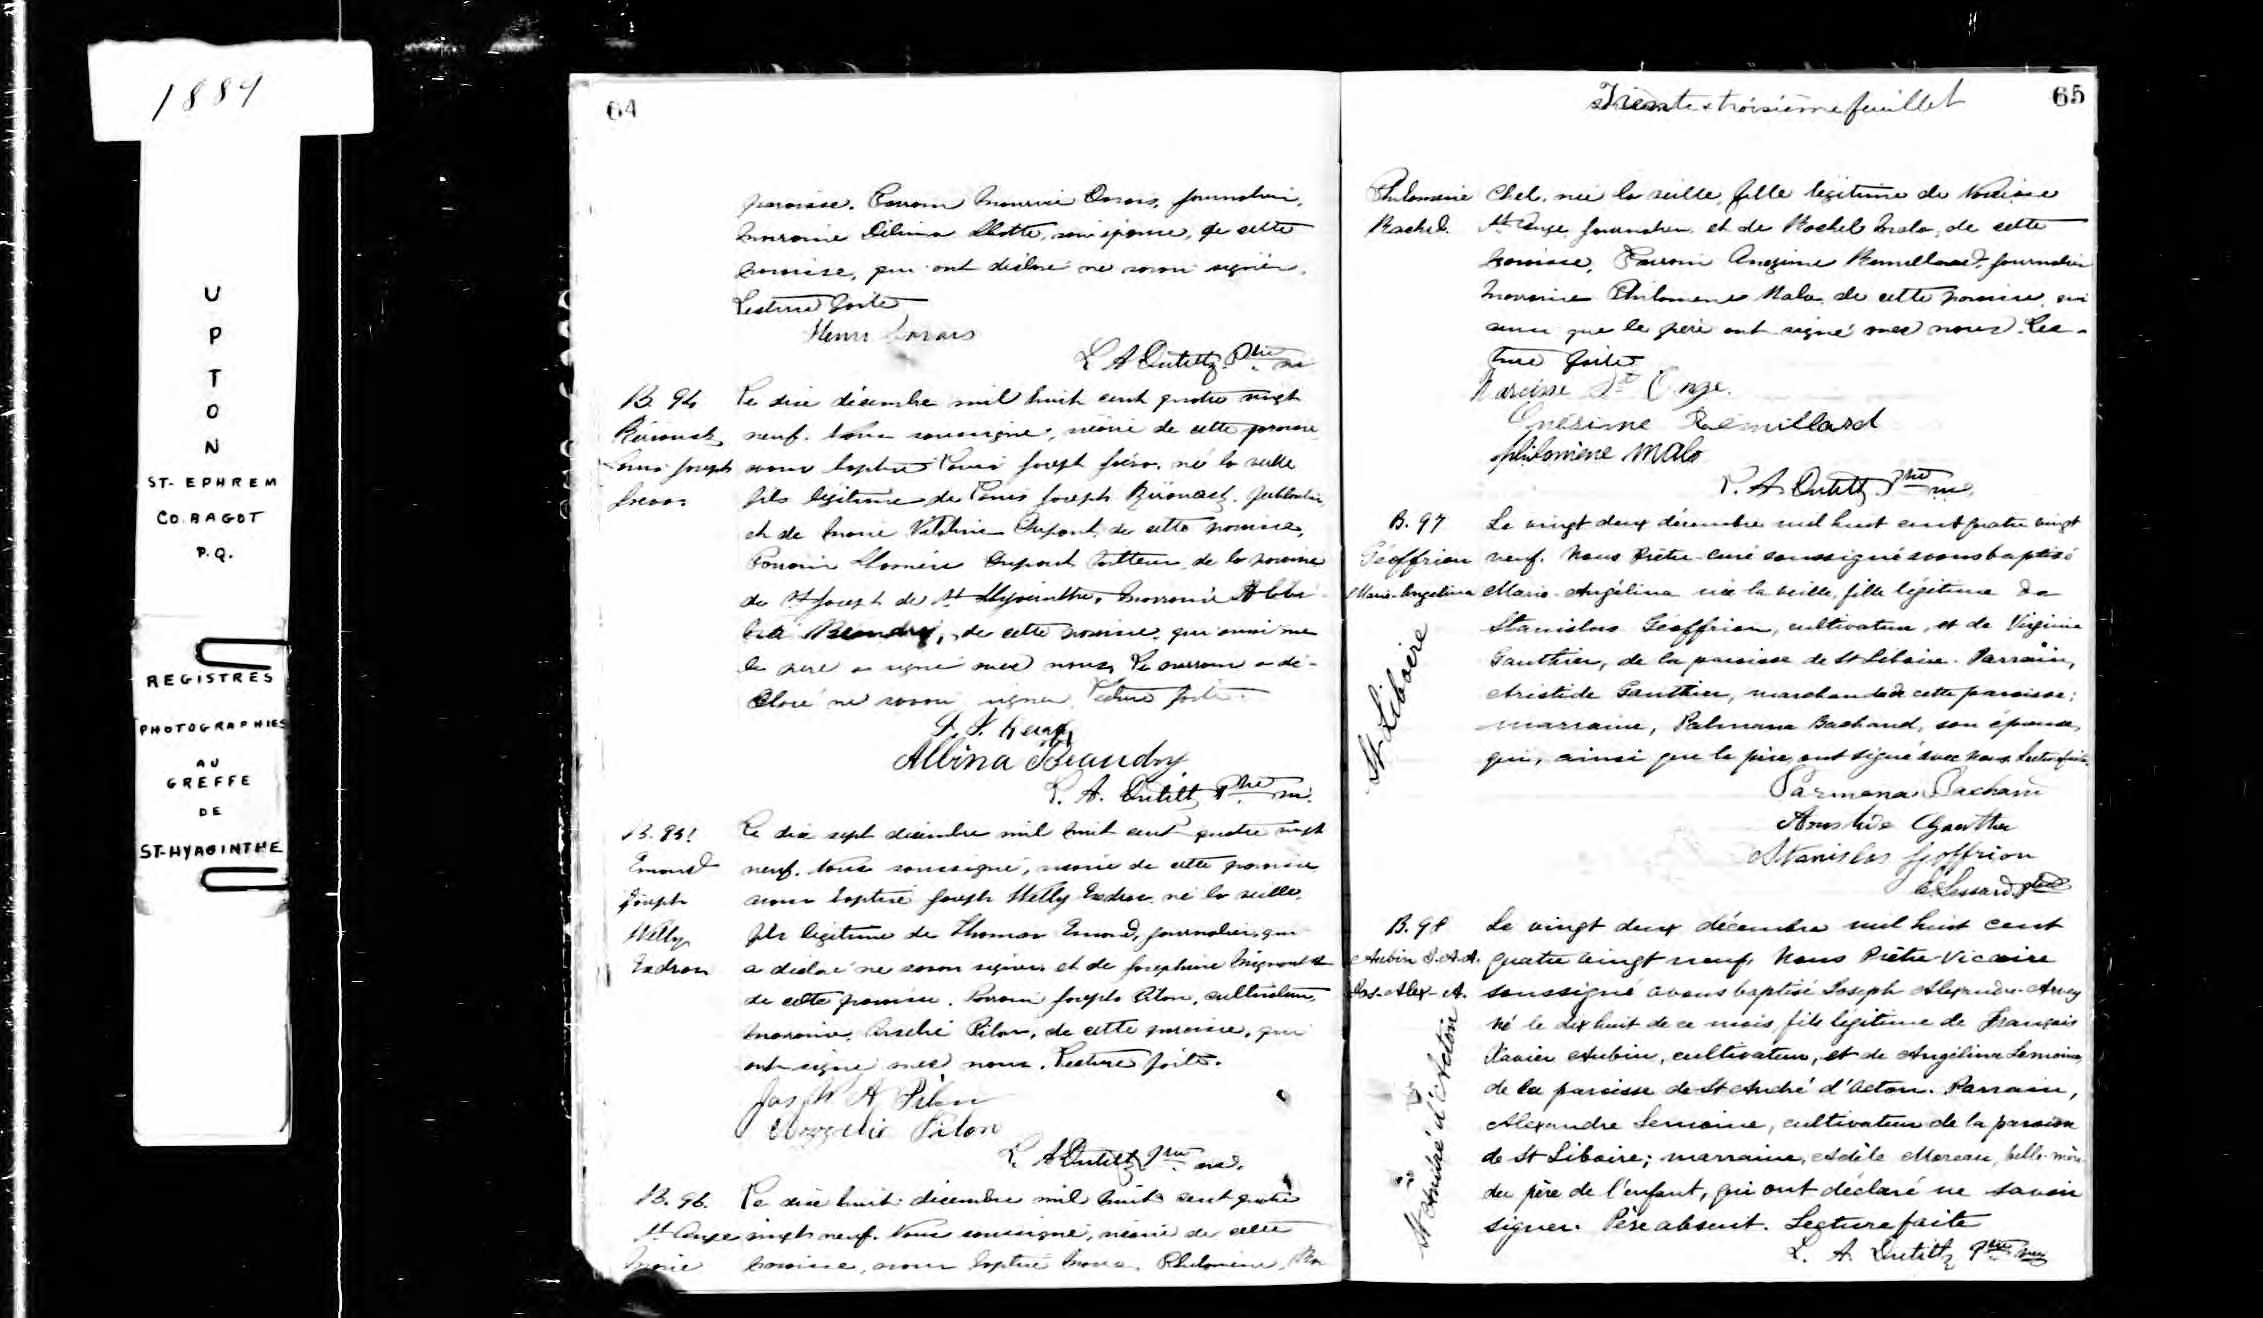 1889
U
P
T
O
N
ST- EPHREM
CO. BAGOT
P.Q.
REGISTRES
PHOTOGRAPHIES
AU
GREFFE
DE
ST-HYACINTHE
64
paroisse. Parrain journalier,
marraine Délima son épouse, de cette
paroisse, qui ont déclaré ne savoir signer.
Lecture faite
Henri
L. A. Dutilly Ptre vic
B. 94 Le dix décembre mil huit cent quatre vingt
neuf. Nous soussigné, vicaire de cette paroisse
Louis Joseph avons baptisé Louis Joseph né la veille
fils légitime de Louis Joseph
et de Marie Dupont, de cette paroisse,
Parrain Dupont de la paroisse
de St Joseph de St Hyacinthe, marraine Albi-
na Beaudry, de cette paroisse, qui ainsi que
le père a signé avec nous. Le parrain a dé-
claré ne savoir signer. Lecture faite.
Albina Beaudry
L. A. Dutilly Ptre vic.
B. 95 Le dix sept décembre mil huit cent quatre vingt
Emond neuf. Nous soussigné, vicaire de cette paroisse
Joseph avons baptisé Joseph Welly né la veille,
Welly fils légitime de Thomas Emond, journalier, qui
a déclaré ne savoir signer, et de Josephine
de cette paroisse. Parrain Joseph Pilon, cultivateur,
marraine Pilon, de cette paroisse, qui
ont signé avec nous. Lecture faite.
Joseph A Pilon
Pilon
L. A. Dutilly Ptre vic.
B. 96. Le dix huit décembre mil huit cent quatre
St Onge vingt neuf. Nous soussigné, vicaire de cette
Marie paroisse, avons baptisé Marie Philomène, Ra
Trente troisième feuillet
65
Philomène chel, née la veille, fille légitime de Narcisse
Rachel. St Onge journalier et de Rachel Malo, de cette
paroisse, Parrain Onézime Remillard, journalier
marraine Philomène Malo de cette paroisse, qui
ainsi que le père ont signé avec nous. Lec-
ture faite
Narcisse St Onge.
Onésime Rémillard
philomène Malo
L. A. Dutilly Ptre vic.
B. 97 Le vingt deux décembre mil huit cent quatre vingt
Géoffrion neuf. Nous Prêtre curé soussigné avons baptisé
Marie-Angélina Marie-Angélina née la veille, fille légitime de
Stanislas Géoffrion, cultivateur, et de Virginie
Gauthier, de la paroisse de St Liboire. Parrain,
Aristide Gauthier, marchand de cette paroisse;
marraine, Palmana Bachand, son épouse,
qui, ainsi que le père, ont signé avec nous. Lecture faite.
St Liboire
Parmena Bachand
Aristide Gauthier
Stanislas Joffrion
Lessard Ptre
B. 98 Le vingt deux décembre mil huit cent
Aubin J.A.A. quatre vingt neuf, Nous Prêtre Vicaire
Jos-Alex-A. soussigné avons baptisé Joseph Alexandre-
né le dix huit de ce mois, fils légitime de François
Xavier Aubin, cultivateur, et de Angélina Lemoine,
de la paroisse de St André d'Acton. Parrain,
Alexandre Lemoine, cultivateur de la paroisse
de St Liboire; marraine, Adèle Moreau, belle-mère
du père de l'enfant, qui ont déclaré ne savoir
signer. Père absent. Lecture faite
St André d'Acton
L. A. Dutilly Ptre vic